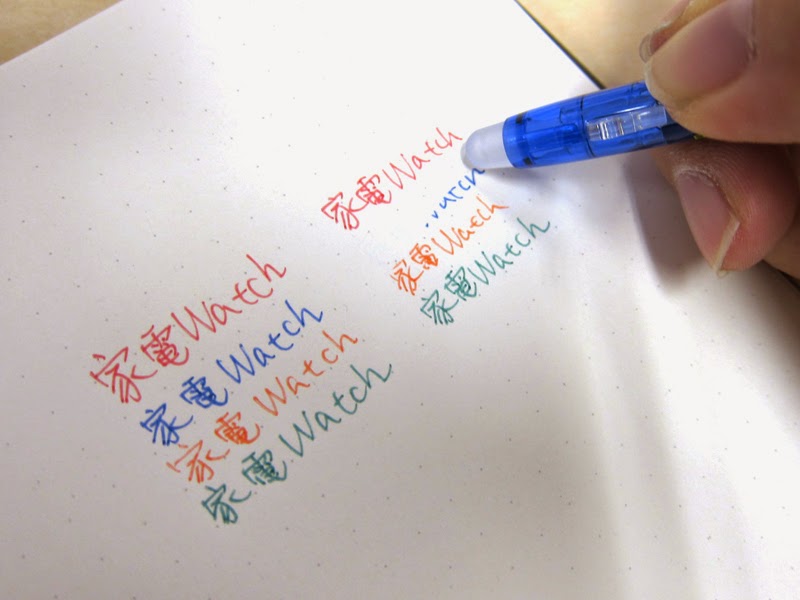 家電Watch
atch
家電Watch
家電Watch
家電Watch
家電Watch
家電Watch
家電Watch